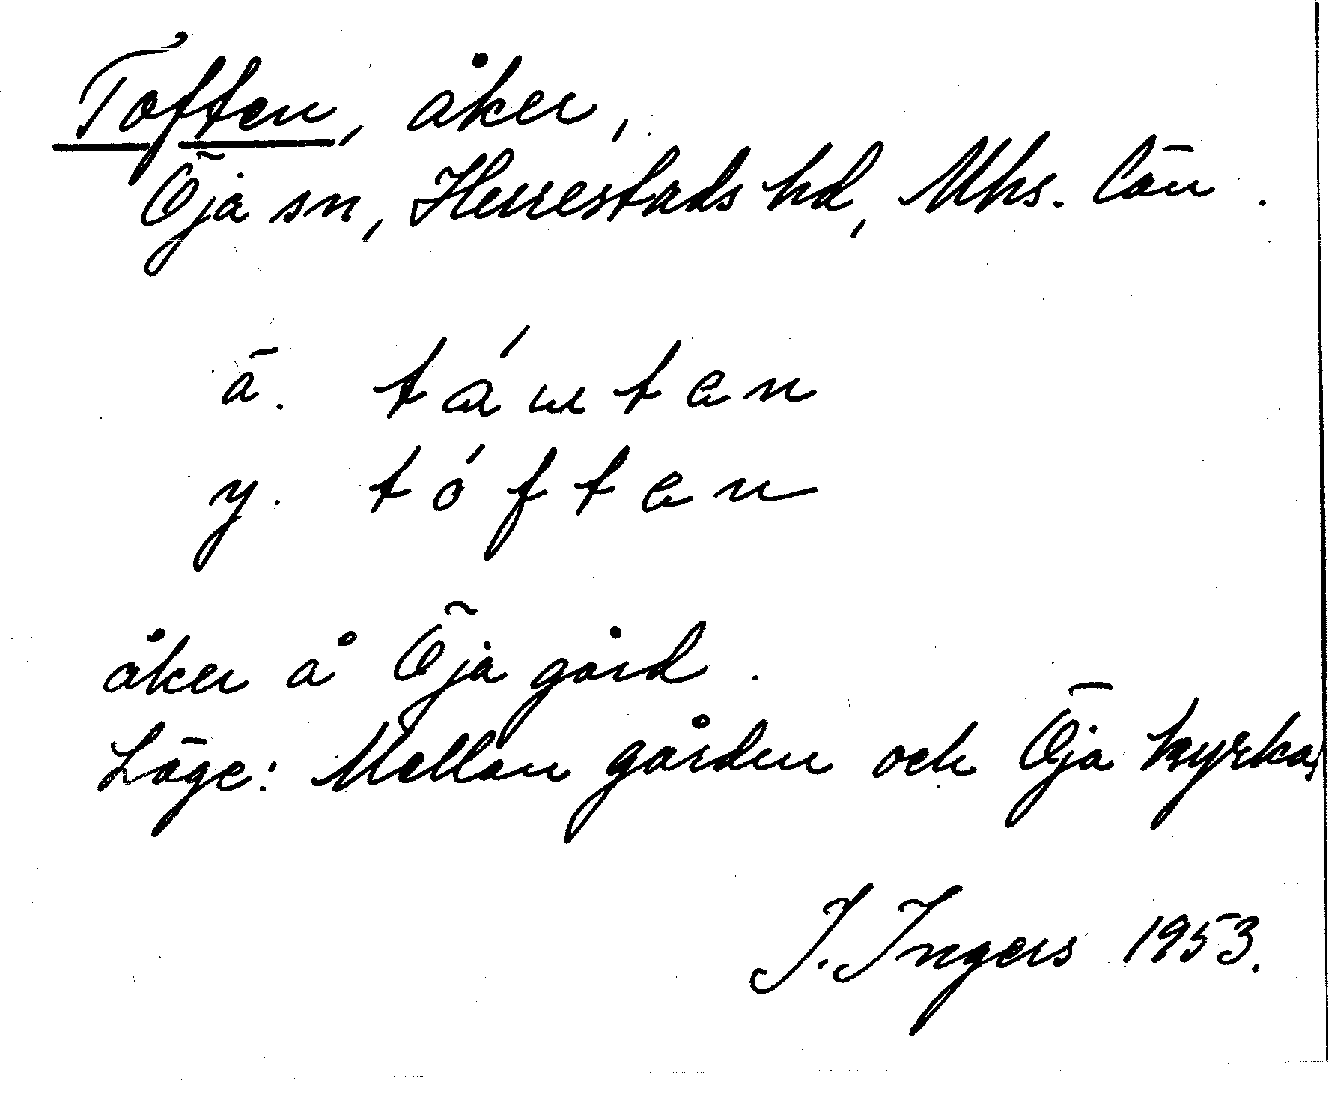 Toften, åker,
Öja sn, Herrestads hd, Mhs. län.
ä. táuten
y. tóften
åker å Öja gård.
Läge: Mellan gården och Öja kyrka.
I. Ingers 1953.